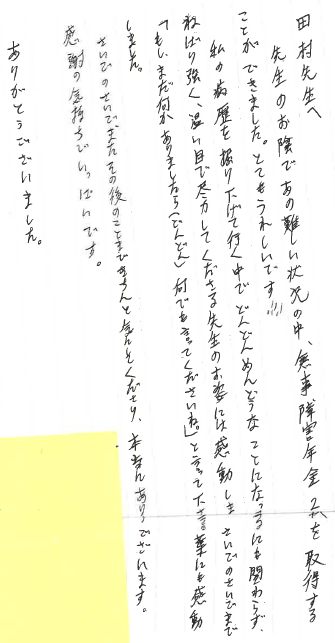 田村先生へ
先生のお陰であの難しい状況の中、無事障害年金2級を取得する
ことができました。とてもうれしいです!!!
私の病歴を掘り下げて行く中でどんどんめんどうなことになってるにも関わらず、
ねばり強く、温い目で尽力してくださる先生のお姿には感動しましたさいごのさいごまで
「もしまだ何かありましたら(どんどん)何でも言ってくださいね。」と言って下さる言葉にも感動
しました。
さいごのさいごまでその後のことまできちんと気にしてくださり、本当にありがとうございます。
感謝の気持ちでいっぱいです。
ありがとうございました。